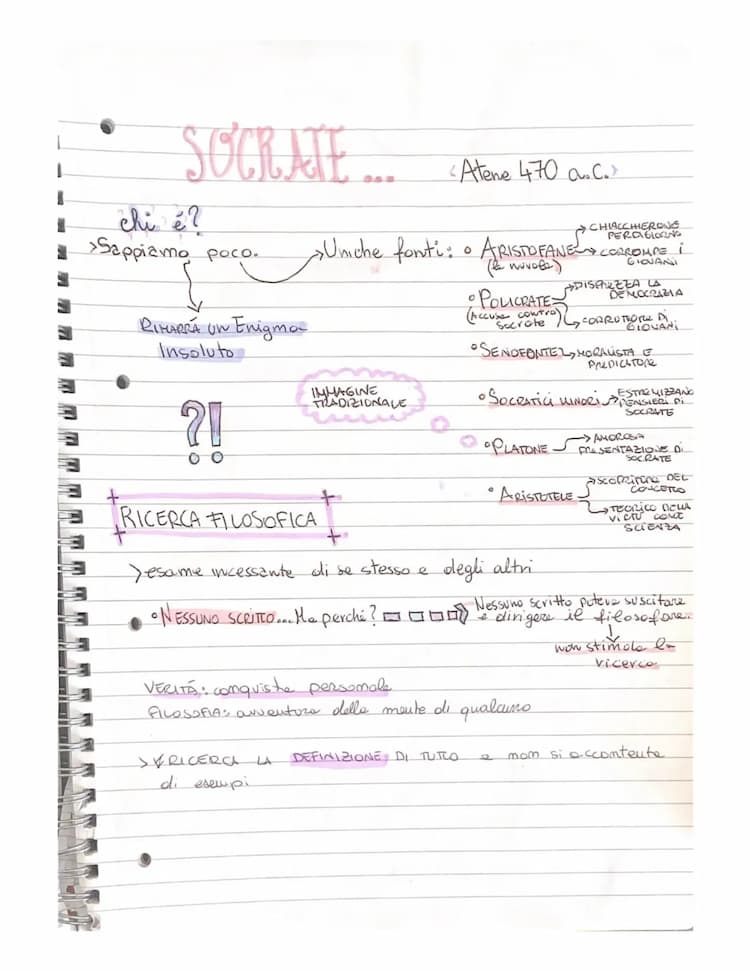 SOCRATE...
(Atene 470 a.C.)
chi é?
>Sappiamo poco.
Uniche fonti:
• ARISTOFANE
(le nuvole)
CHIACCHIERONE
PERDIGIORNO
CORROMPE I
GIOVANI
RIMARRÁ un Enigma
Insoluto
• POLICRATE
(Accuse contro
Socrate)
DISPREZZA LA
DEMOCRAZIA
CORRUTTORE DI
GIOVANI
• SENOFONTE
MORALISTA E
PREDICATORE
?!
IMMAGINE
TRADIZIONALE
• SOCRATICI MINORI
ESTREMIZZANO
PENSIERI DI
SOCRATE
• PLATONE
AMOROSA
PRESENTAZIONE DI
SOCRATE
• ARISTOTELE
SCOPRITORE DEL
CONCETTO
TEORICO DELLA
VIRTÙ COME
SCIENZA
RICERCA FILOSOFICA
>esame incessante di se stesso e degli altri
• NESSUNO SCRITTO... Ma perché?
Nessuno scritto poteva suscitare
e dirigere il filosofare.
non stimola la
ricerca
VERITÁ: conquista personale
FILOSOFIA: avventura della mente di qualcuno
> RICERCA LA DEFINIZIONE DI TUTTO e non si accontenta
di esempi